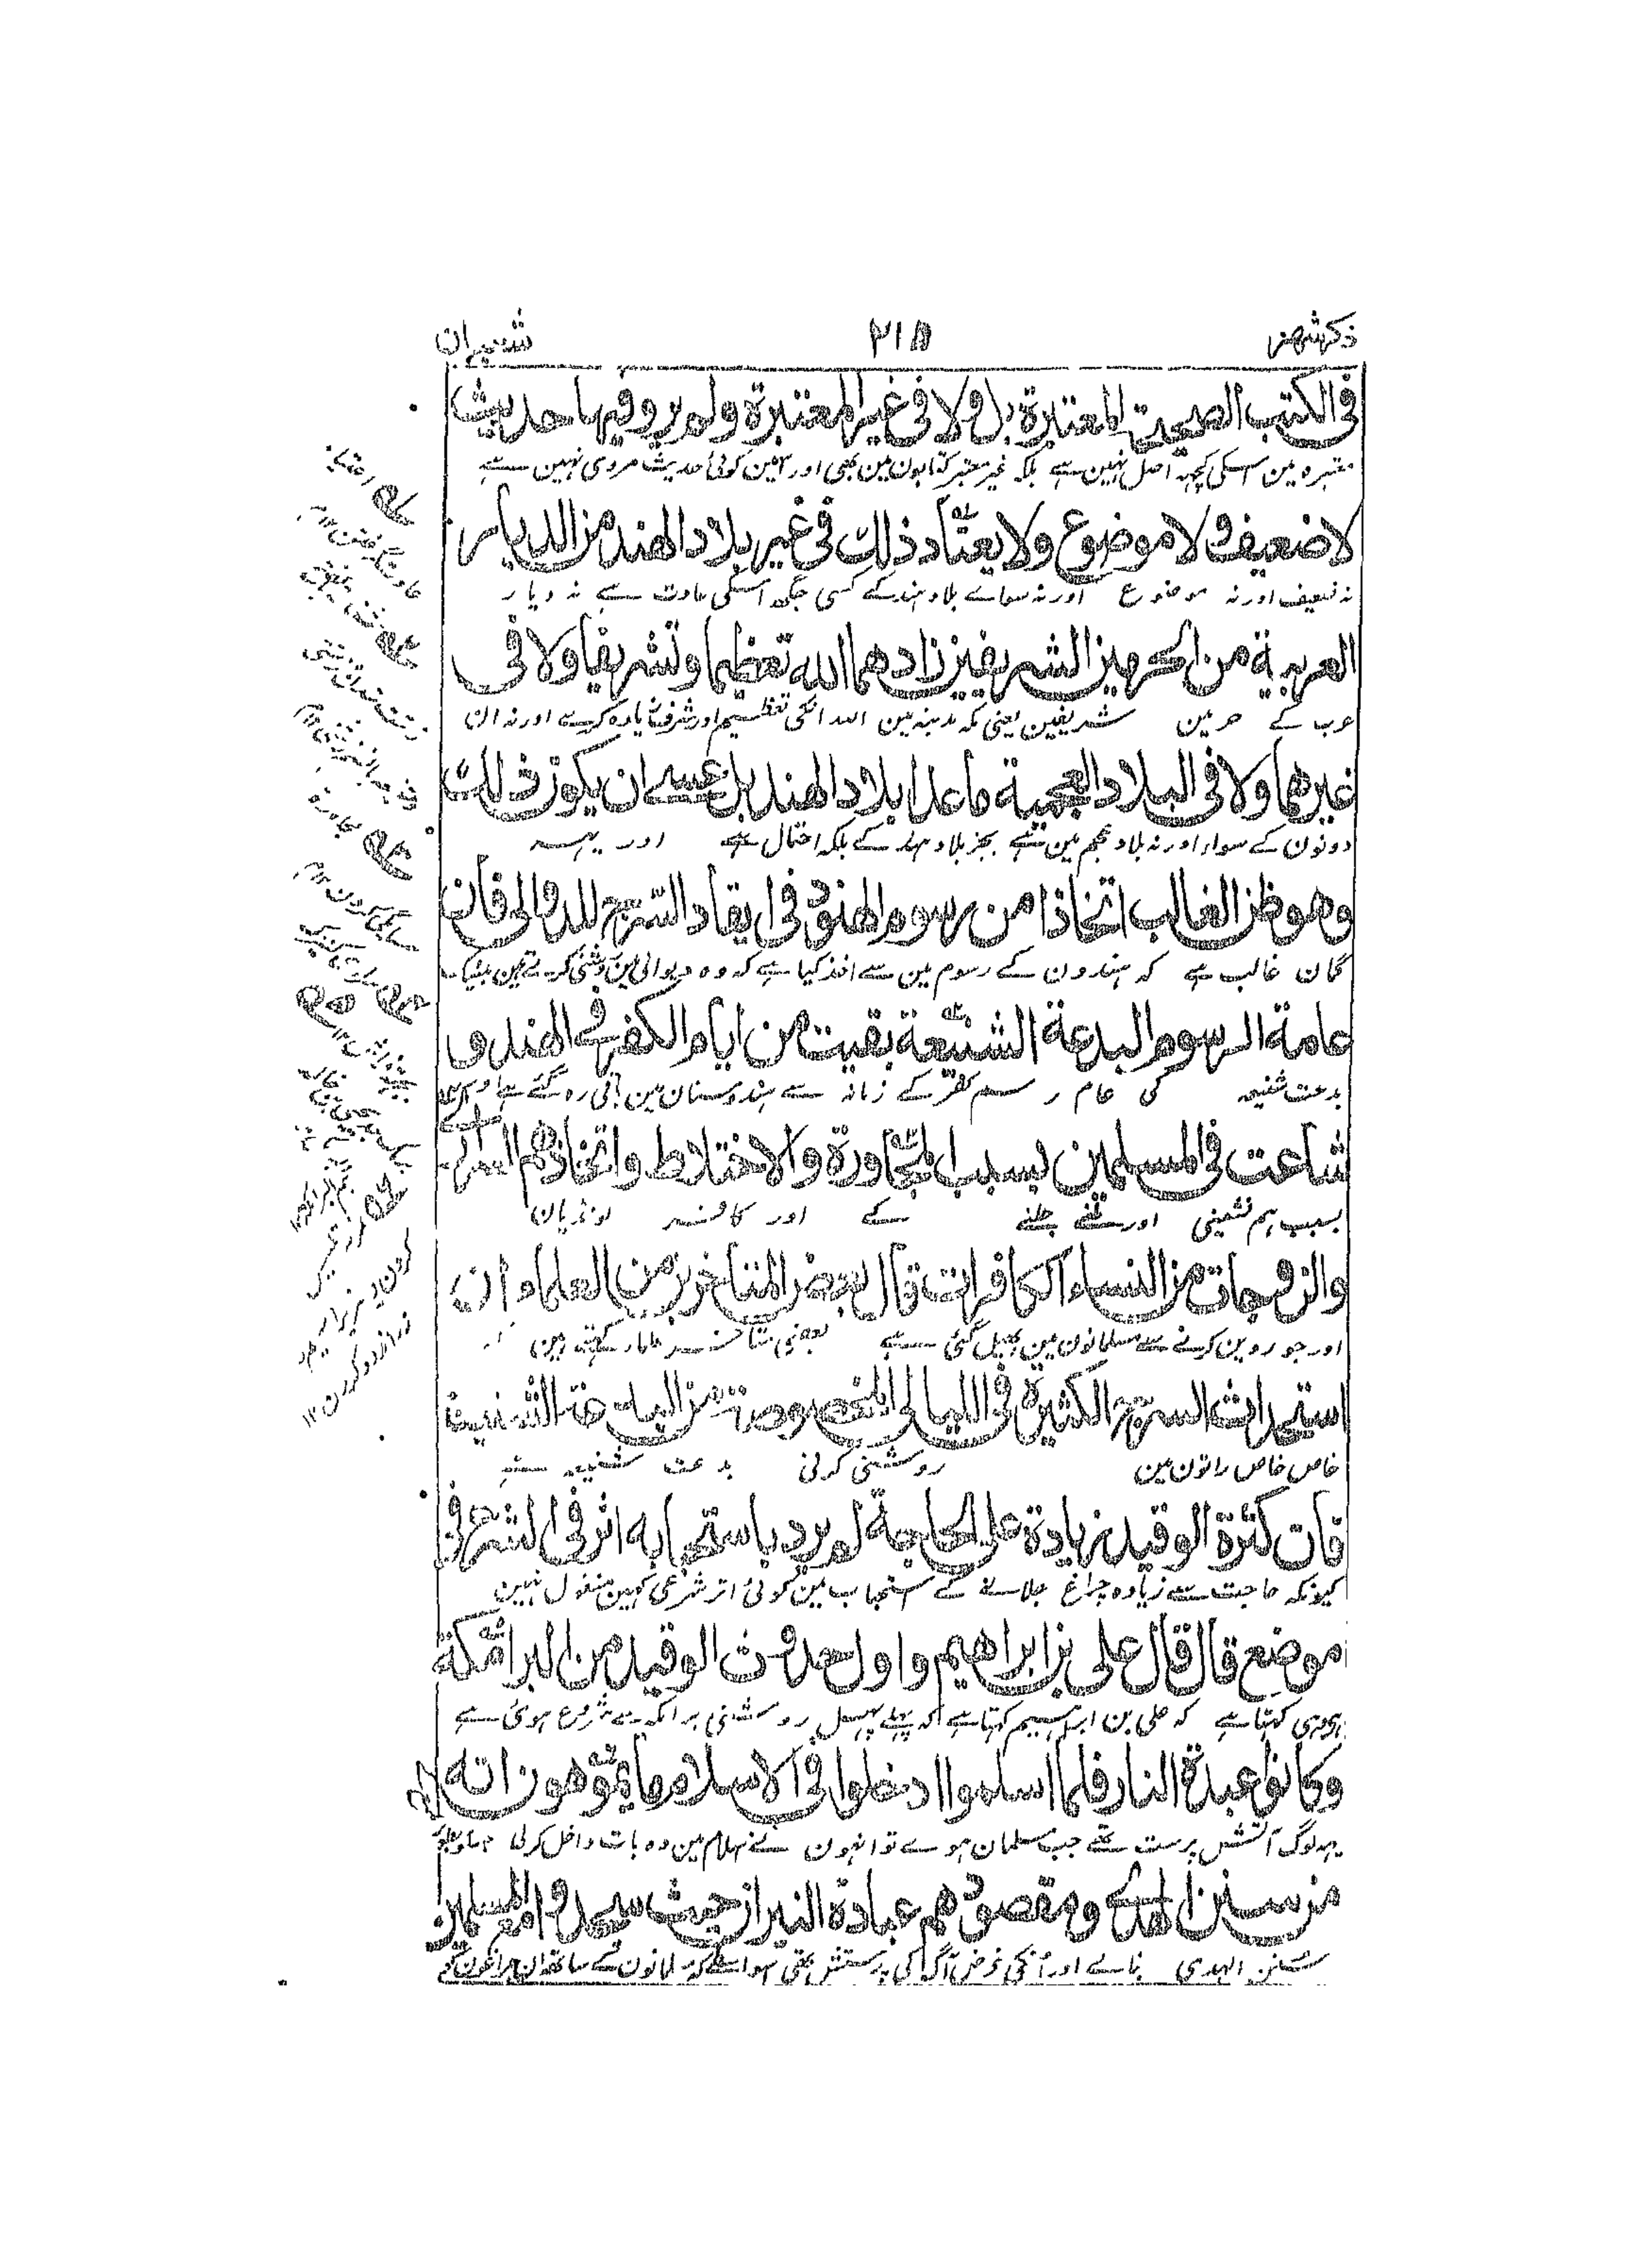 ذکر شهر ۲۱۵ شعبان
فی الکتب الصحیحة المعتبرة بل ولا فی غیر المعتبرة ولم یرو فیها حدیث
معتبرہ مین اسکی کچہہ اصل نہین ہے بلکہ غیر معتبر کتابون مین بھی اور نہ اسمین کوئی حدیث مروی نہین ہے
لا ضعیف ولا موضوع ولا یعتاد ذلک فی غیر بلاد الهند من الدیار
نہ ضعیف اور نہ موضوع اور نہ سواے بلاد ہند کے کسی جگہ اسکی عادت ہے نہ دیار
العربیة من الحرمین الشریفین زادهما الله تعظیما وتشریفا ولا فی
عرب کے حرمین شریفین یعنی مکہ مدینہ مین اللہ انکی تعظیم اور شرافت زیادہ کرے اور نہ ان
غیرهما ولا فی البلاد العجمیة ما عدا بلاد الهند بل عسی ان یکون ذلک
دونون کے سوا اور نہ بلاد عجم مین ہے بجز بلاد ہند کے بلکہ احتمال ہے اور یہہ
وهو ظن الغالب اتخاذا من رسوم الهنود فی ایقاد السرج للدوالی فان
گمان غالب ہے کہ ہندوون کے رسوم مین سے اخذ کیا ہے کہ وہ دیوالی مین روشنی کرتے ہین بیشک
عامة الرسوم البدعة الشنیعة بقیت من ایام الکفر فی الهند و
بدعت شنیعہ کی عام رسم کفر کے زمانہ سے ہندوستان مین باقی رہ گئے ہے اور
شاعت فی المسلمین بسبب المجاورة والاختلاط واتخاذهم السراری
بسبب ہم نشینی اور ملنے جلنے کے اور کافر لونڈیان
والزوجات من النساء الکافرات قال بعض المتاخرین من العلماء ان
اور جوروین کرنے سے مسلمانون مین پھیل گئی ہے بعضے متاخر علماء کہتے ہین
استحداث السرج الکثیرة فی اللیالی المخصوصة من البدعة الشنیعة
خاص خاص راتون مین روشنی کرنی بدعت شنیعہ ہے
فان کثرة الوقید زیادة علی الحاجة لم یرد باستحبابه اثر فی الشرع فی
کیونکہ حاجت سے زیادہ چراغ جلانے کے استحباب مین کوئی اثر شرعی کہین منقول نہین
موضع قال قال علی بن ابراهیم واول حدوث الوقید من البرامکة
کہتا ہے کہ علی بن ابراہیم کہتا ہے کہ پہلے پہل روشنی برامکہ سے شروع ہوئی ہے
وکانوا عبدة النار فلما اسلموا ادخلوا فی الاسلام ما یموهون انه
یہہ لوگ آتش پرست تھے جب مسلمان ہوے تو انہون نے اسلام مین وہ بات داخل کرلی
من سنن الهدی ومقصودهم عبادة النیران حیث سجدوا مع المسلمین
سنن الہدی بنانے اور انکی غرض آگ کی پرستش تھی اسواسطے کہ مسلمانون کے ساتھہ ان چراغون کے